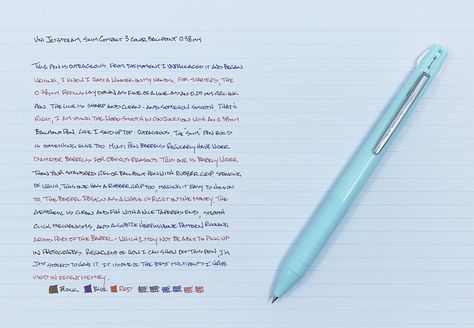 UNI JETSTREAM SLIM COMPACT 3 COLOR BALLPOINT 0.38MM
THIS PEN IS OUTRAGEOUS. FROM THE MOMENT I UNPACKAGED IT AND BEGAN
WRITING, I KNEW I HAD A WINNER ON MY HANDS. FOR STARTERS, THE
0.38MM REFILLS LAY DOWN AS FINE OF A LINE AS AN 0.25 MM GEL INK
PEN. THE LINE IS SHARP AND CLEAN - AND SOMEHOW SMOOTH. THAT'S
RIGHT, I AM USING THE WORD SMOOTH IN CONJUNCTION WITH AN 0.38MM
BALLPOINT PEN. LIKE I SAID UP TOP: OUTRAGEOUS. THE SLIM PEN BUILD
IS SOMETHING ELSE TOO. MULTI PEN BARRELS REGULARLY HAVE WIDER
DIAMETER BARRELS FOR OBVIOUS REASONS. THIS ONE IS BARELY WIDER
THAN YOUR STANDARD GEL OR BALLPOINT PEN WITH RUBBER GRIP. SPEAKING
OF WHICH, THIS ONE HAS A RUBBER GRIP TOO, MAKING IT EASY TO HOLD ON
TO. THE BARREL DESIGN AS A WHOLE IS RIGHT ON THE MONEY. THE
AESTHETIC IS CLEAN AND FUN WITH A NICE TAPERED END, SMOOTH
CLICK MECHANISMS, AND A SUBTLE HERRINGBONE PATTERN RUNNING
AROUND PART OF THE BARREL - WHICH I MAY NOT BE ABLE TO PICK UP
IN PHOTOGRAPHS. REGARDLESS OF HOW I CAN SHOW OFF THIS PEN, I'M
JUST STOKED TO HAVE IT. IT IS ONE OF THE BEST MULTI PENS I HAVE
USED IN RECENT MEMORY.
BLACK BLUE RED